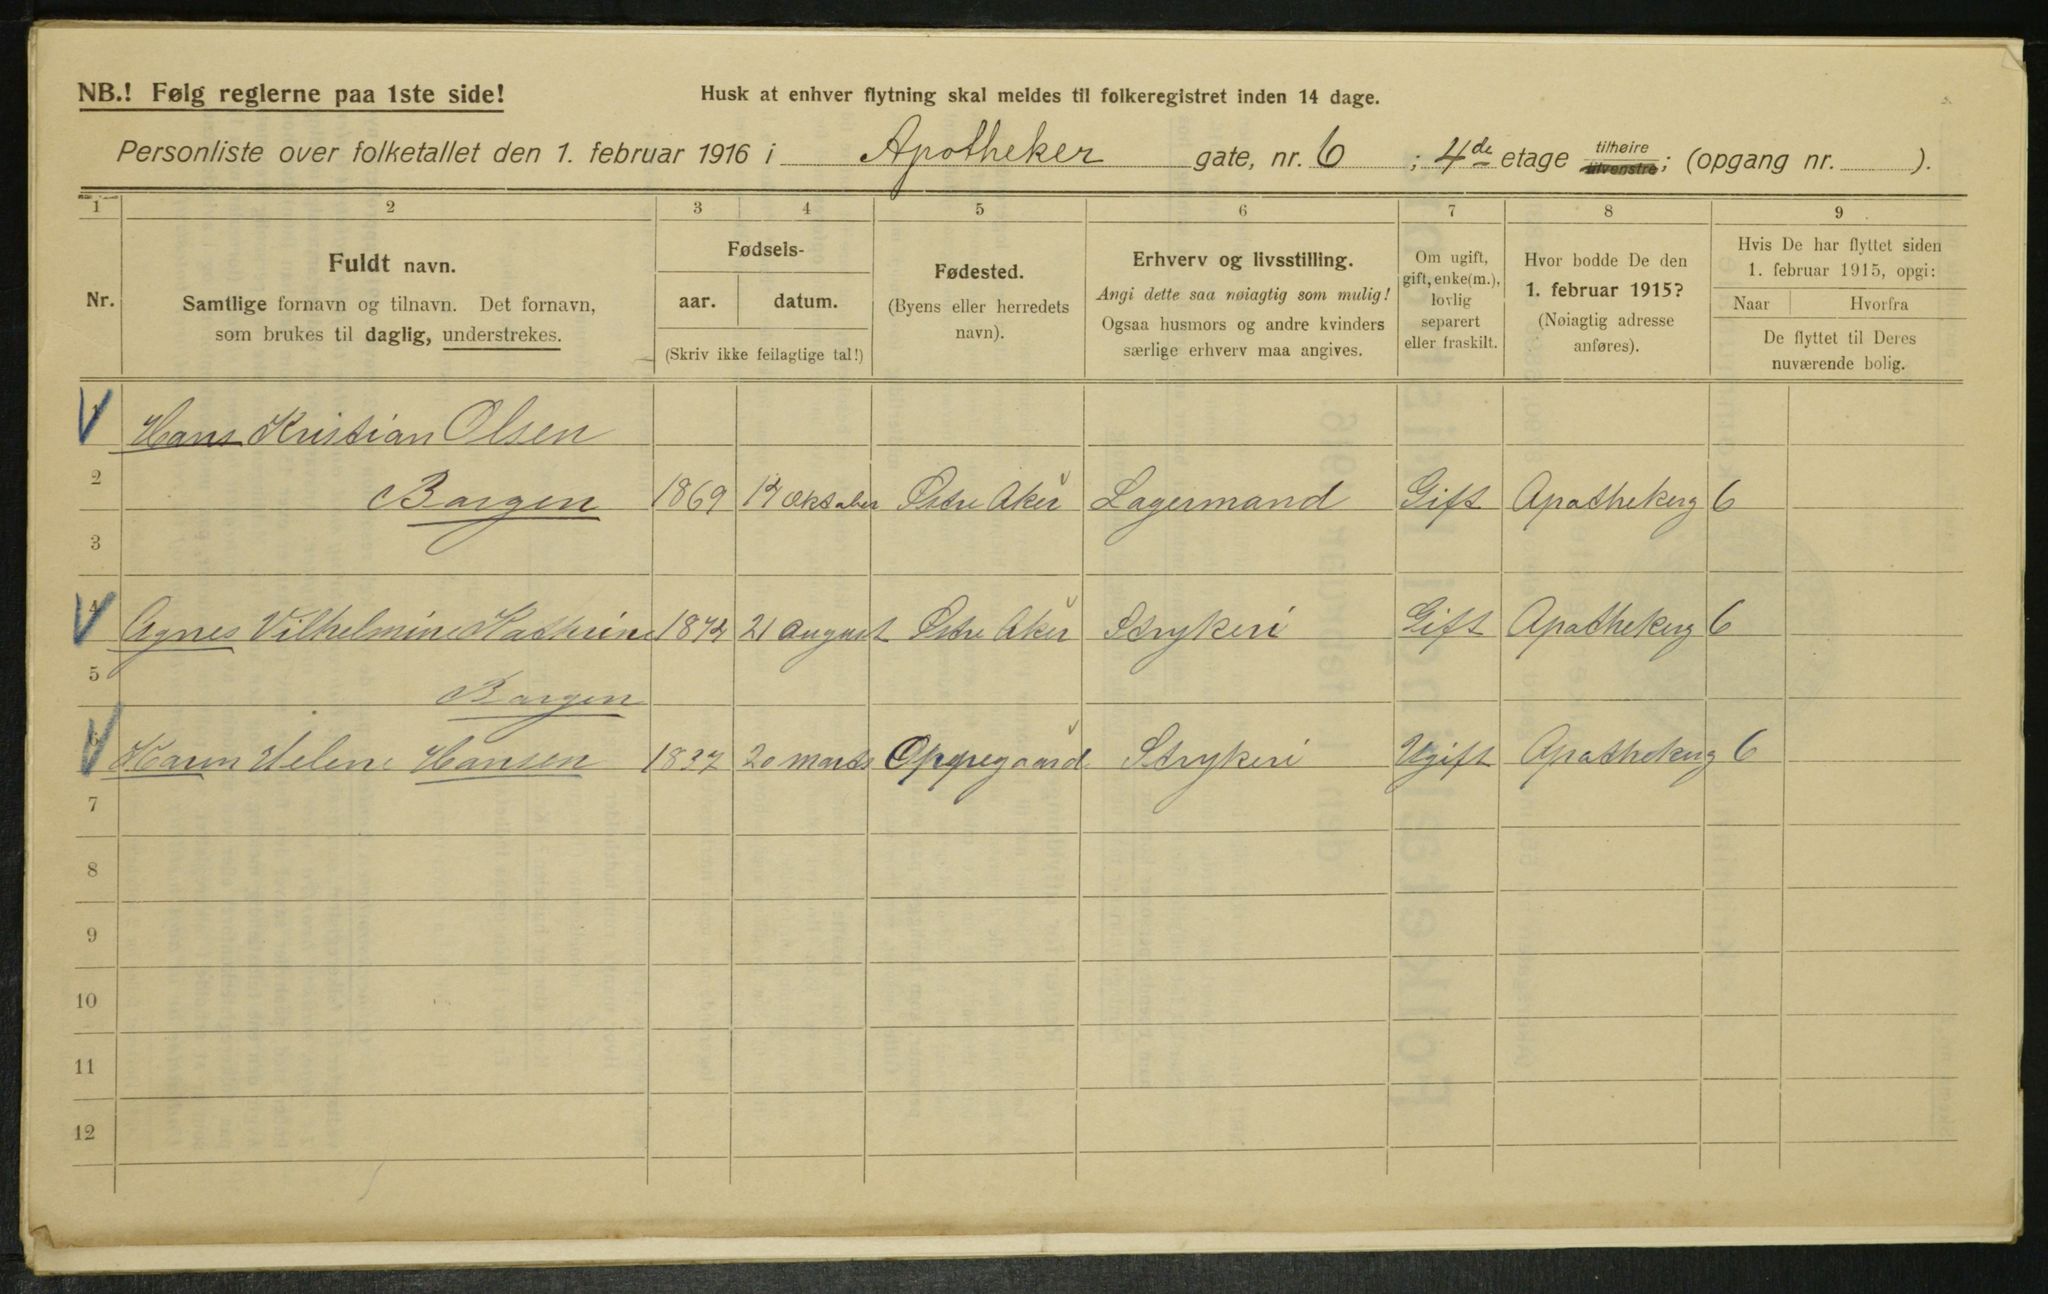 NB.! Følg reglerne paa 1ste side!
Husk at enhver flytning skal meldes til folkeregistret inden 14 dage.
Personliste over folketallet den 1. februar 1916 i Apotheker gate, nr. 6; 4de etage tilhøire tilvenstre; (opgang nr. ).
1 2 3 4 5 6 7 8 9
Nr.
Fuldt navn.
Samtlige fornavn og tilnavn. Det fornavn,
som brukes til daglig, understrekes.
Fødsels-
aar. datum.
(Skriv ikke feilagtige tal!)
Fødested.
(Byens eller herredets
navn).
Erhverv og livsstilling.
Angi dette saa nøiagtig som mulig!
Ogsaa husmors og andre kvinders
særlige erhverv maa angives.
Om ugift,
gift, enke(m.),
lovlig
separert
eller fraskilt.
Hvor bodde De den
1. februar 1915?
(Nøiagtig adresse
anføres).
Hvis De har flyttet siden
1. februar 1915, opgi:
Naar Hvorfra
De flyttet til Deres
nuværende bolig.
1 Hans Kristian Olsen
2 Borgen 1869 Oktober Østre Aker Lagermand Gift Apothekerg 6
3
4 Agnes Vilhelmine Kathrine 21 August Østre Aker Strykeri Gift Apothekerg 6
5 Borgen
6 Karen Helene Hansen 1837 20 Marts Oppegaard Strykeri Ugift Apothekerg 6
7
8
9
10
11
12